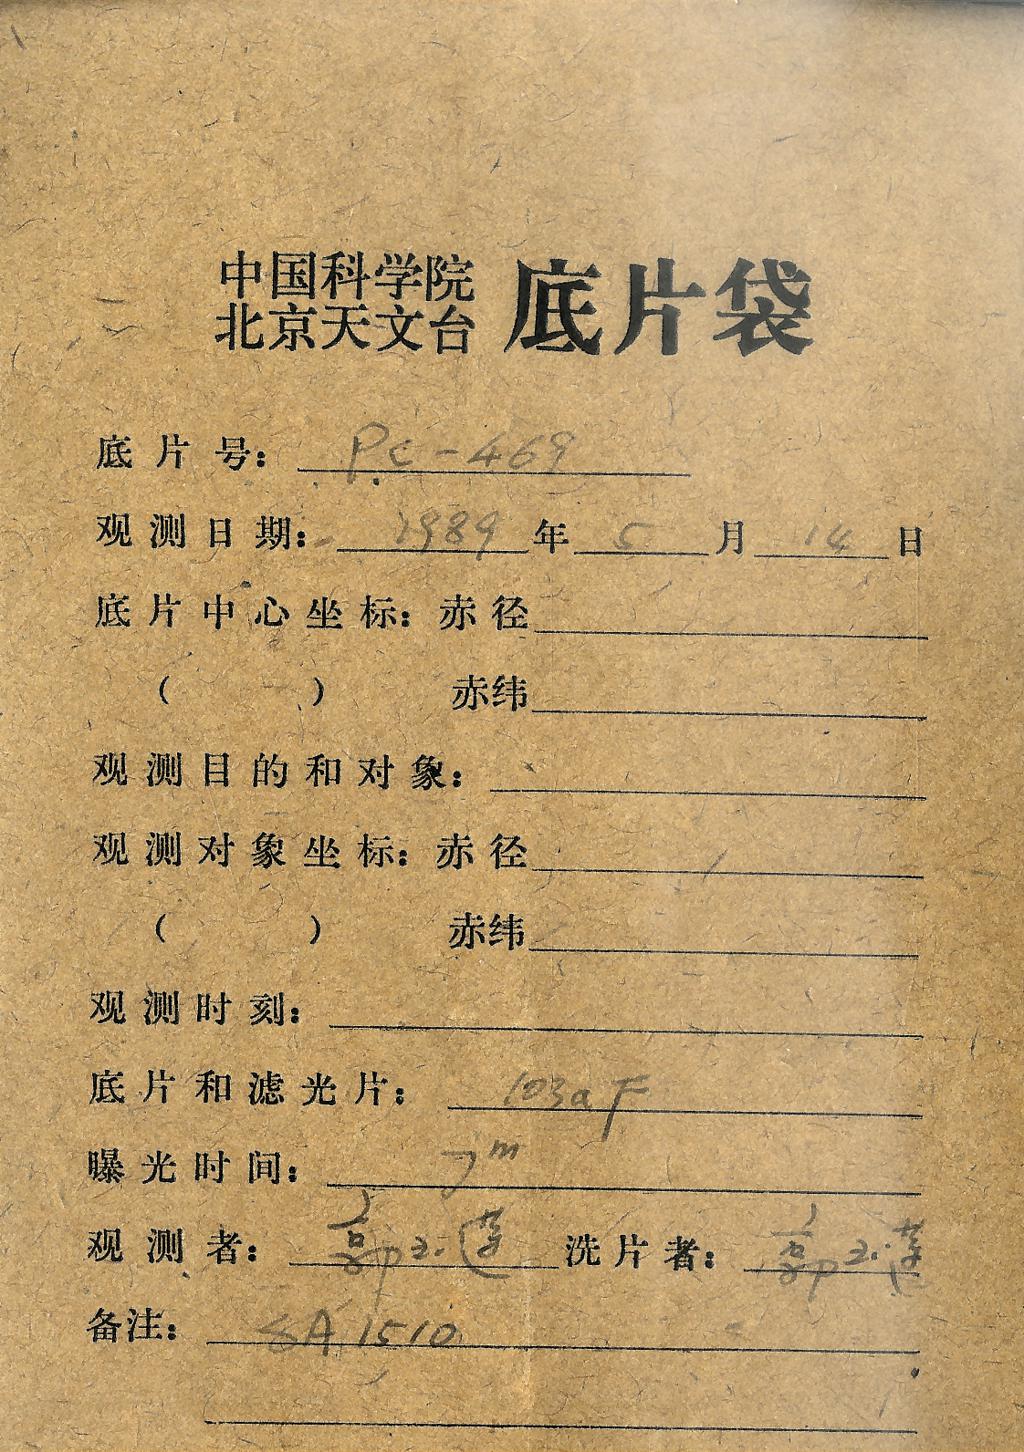 中国科学院
北京天文台 底片袋
底片号: Pc-469
观测日期: 1989 年 5 月 14 日
底片中心坐标: 赤径
( ) 赤纬
观测目的和对象:
观测对象坐标: 赤径
( ) 赤纬
观测时刻:
底片和滤光片: 103aF
曝光时间: 7m
观测者: 郭玉莲 洗片者: 郭玉莲
备注: SA 1510